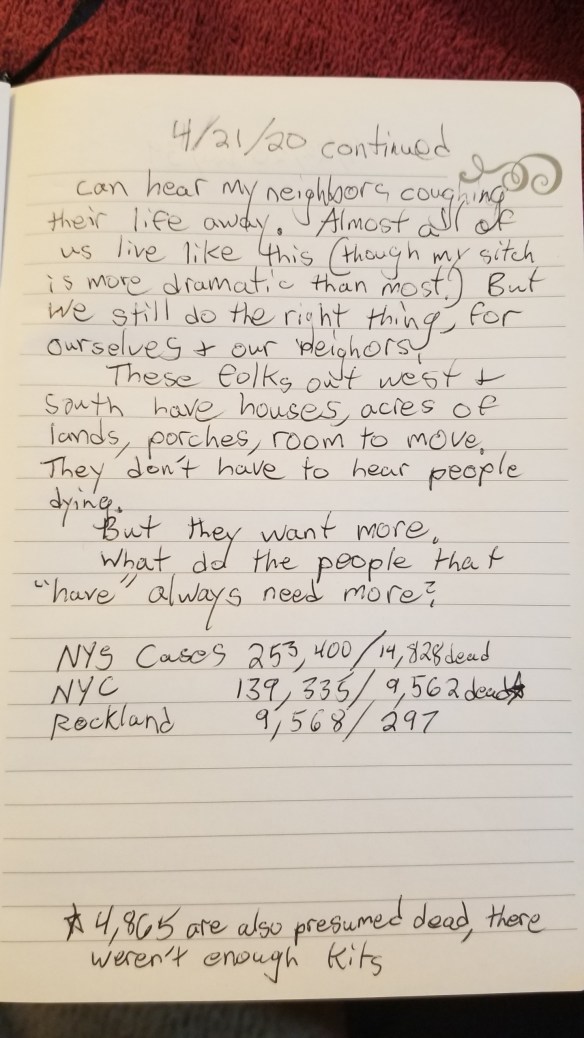 4/21/20 continued
can hear my neighbors coughing
their life away. Almost all of
us live like this (though my sitch
is more dramatic than most.) But
we still do the right thing, for
ourselves + our neighors,
These folks out west +
South have houses, acres of
lands, porches, room to move.
They don't have to hear people
dying.
But they want more.
What do the people that
"have" always need more?
NYS Cases 253,400/14,828 dead
NYC 139,335/9,562 dead☆
Rockland 9,568/297
☆ 4,865 are also presumed dead, there
weren't enough Kits